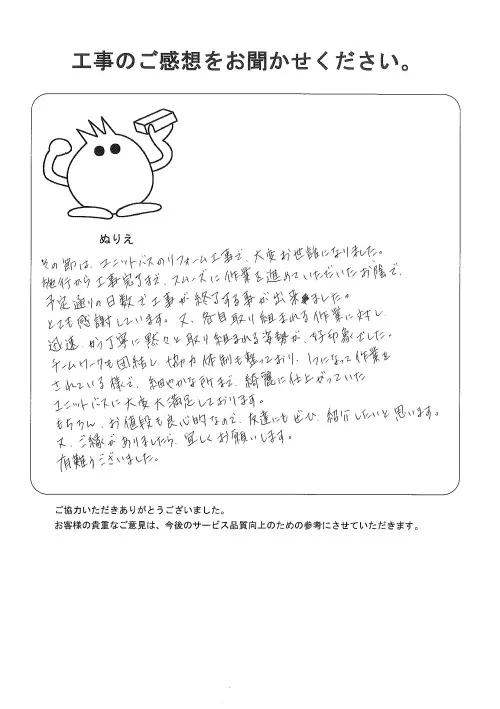 工事のご感想をお聞かせください。
ぬりえ
その節は、ユニットバスのリフォーム工事で、大変お世話になりました。
施行から工事完了まで、スムーズに作業を進めていただいたお陰で、
予定通りの日数で工事が終了する事が出来ました。
とても感謝しています。又、各自取り組まれる作業に対し、
迅速かつ丁寧に黙々と取り組まれる姿勢が、好印象でした。
チームワークも団結し、協力体制も整っており、1つになって作業を
されている様で、細やかな所まで、綺麗に仕上がっていた
ユニットバスに大変大満足しております。
もちろん、お値段も良心的なので、友達にもぜひ、紹介したいと思います。
又、ご縁がありましたら、宜しくお願いします。
有難うございました。
ご協力いただきありがとうございました。
お客様の貴重なご意見は、今後のサービス品質向上のための参考にさせていただきます。